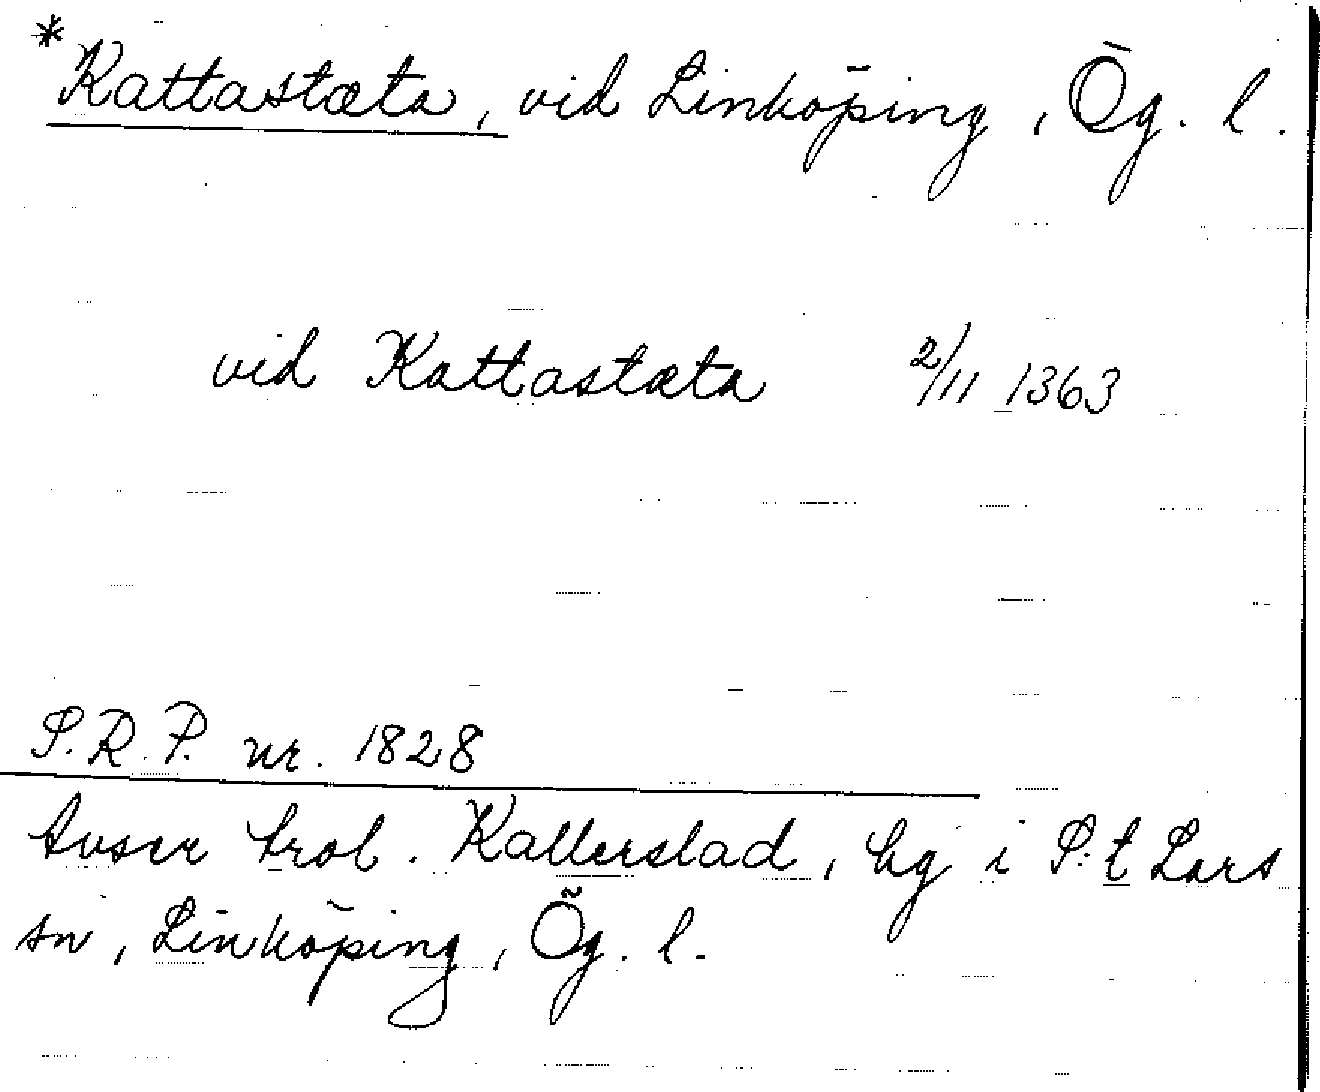 *Kattastæta, vid Linköping, Ög. l.
vid Kattastæta 2/11 1363
S.R.P. nr. 1828
Avser trol. Kallerstad, by i S:t Lars
sn, Linköping, Ög. l.